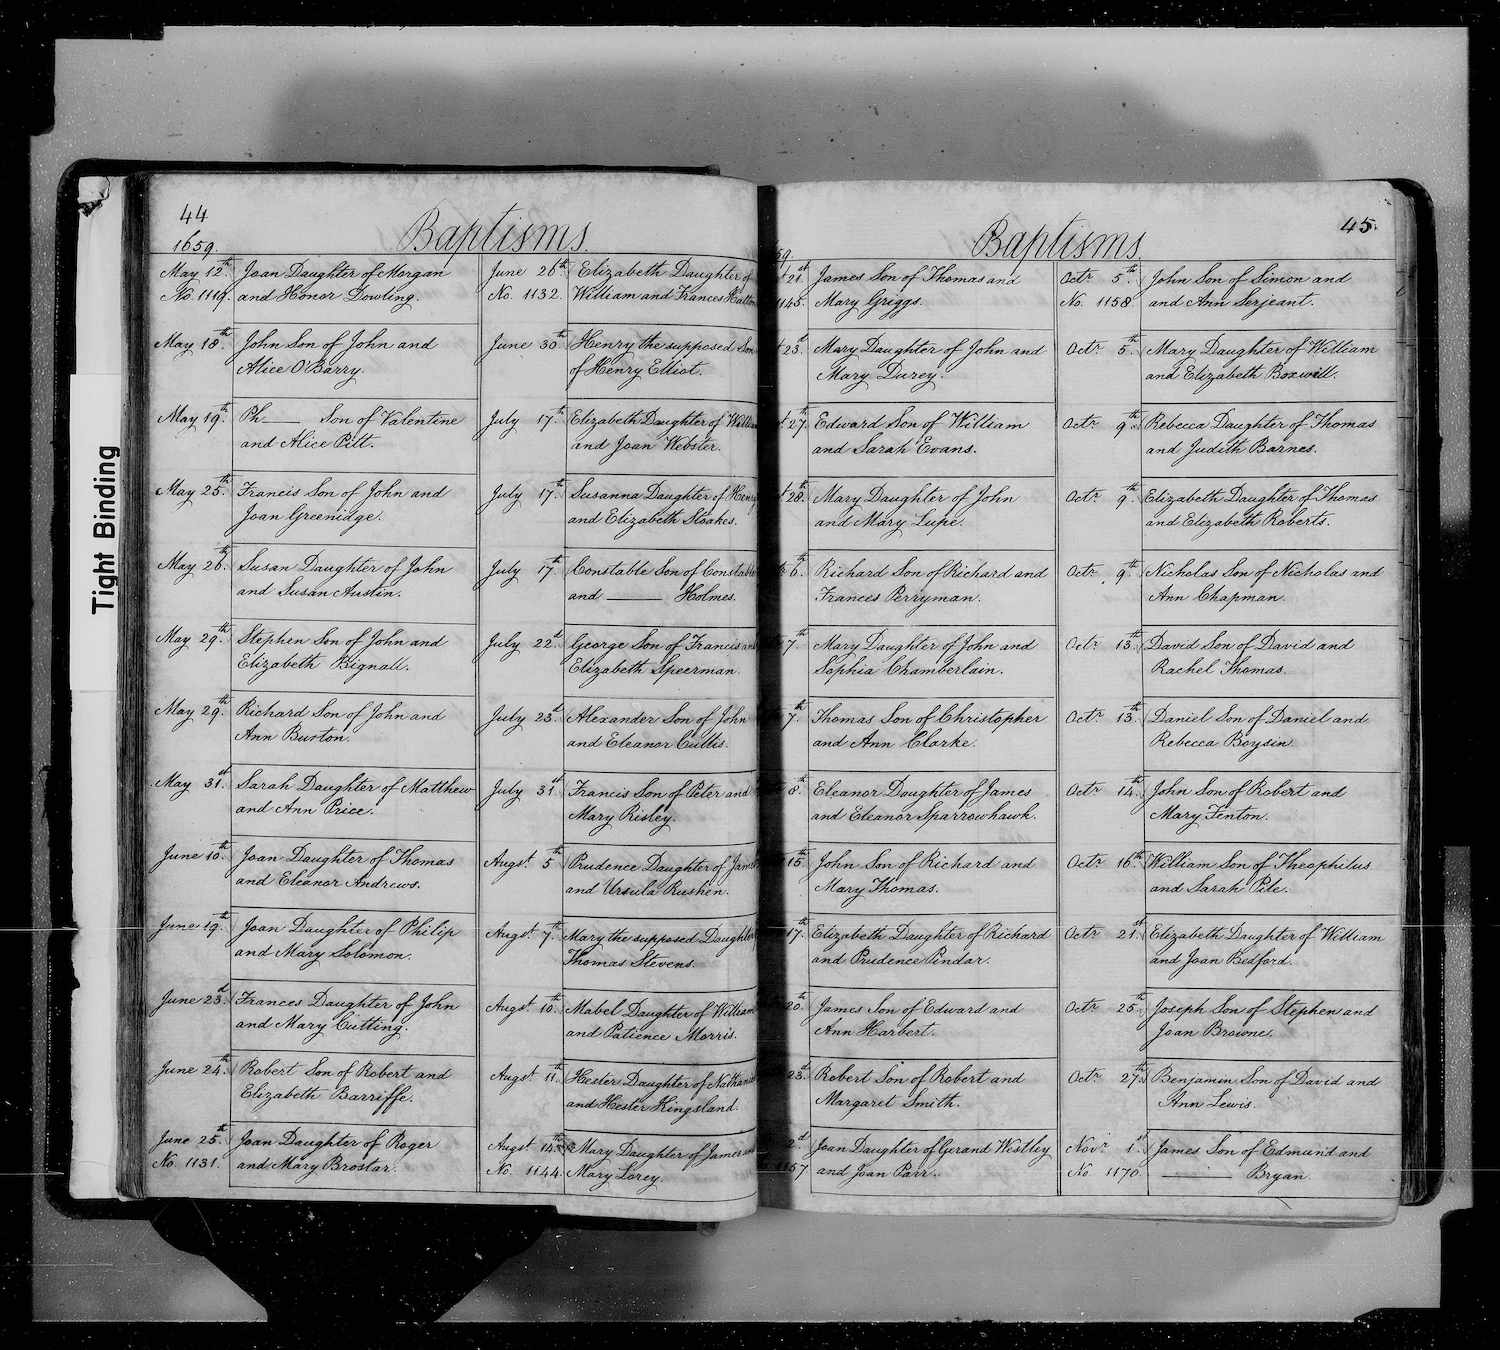 Tight Binding
44
Baptisms.
1659.
May 12th. Joan Daughter of Morgan
No. 1119. and Honor Dowling.
May 18th. John Son of John and
Alice O'Barry.
May 19th. Ph___ Son of Valentine
and Alice Pitt.
May 25th. Francis Son of John and
Joan Greenidge.
May 26th. Susan Daughter of John
and Susan Austin.
May 29th. Stephen Son of John and
Elizabeth Bignall.
May 29th. Richard Son of John and
Ann Burton.
May 31st. Sarah Daughter of Matthew
and Ann Price.
June 10th. Joan Daughter of Thomas
and Eleanor Andrews.
June 19th. Joan Daughter of Philip
and Mary Solomon.
June 23d. Frances Daughter of John
and Mary Cutting.
June 24th. Robert Son of Robert and
Elizabeth Barriffe.
June 25th. Joan Daughter of Roger
No. 1131. and Mary Brostar.
June 26th. Elizabeth Daughter of
No. 1132. William and Frances
June 30th. Henry the supposed Son
of Henry Elliot.
July 17th. Elizabeth Daughter of
and Joan Webster.
July 17th. Susanna Daughter of Henry
and Elizabeth Stoakes.
July 17th. Constable Son of
and ___ Holmes.
July 22d. George Son of Francis and
Elizabeth Speerman.
July 23d. Alexander Son of John
and Eleanor Cullis.
July 31st. Francis Son of Peter and
Mary Risley.
Augst. 5th. Prudence Daughter of
and Ursula Rushen.
Augst. 7th. Mary the supposed
Thomas Stevens.
Augst. 10th. Mabel Daughter of William
and Patience Morris.
Augst. 11th. Hester Daughter of
and Hester Kingsland.
Augst. 14th. Mary Daughter of James
No. 1144. Mary Lorey.
45.
Baptisms.
59
21st. James Son of Thomas and
1145. Mary Griggs.
23d. Mary Daughter of John and
Mary Durey.
27. Edward Son of William
and Sarah Evans.
28. Mary Daughter of John
and Mary Lupe.
6th. Richard Son of Richard and
Frances Perryman.
7th. Mary Daughter of John and
Sophia Chamberlain.
7th. Thomas Son of Christopher
and Ann Clarke.
8th. Eleanor Daughter of James
and Eleanor Sparrowhawk.
15th. John Son of Richard and
Mary Thomas.
17th. Elizabeth Daughter of Richard
and Prudence Pindar.
20th. James Son of Edward and
Ann Harbert.
23d. Robert Son of Robert and
Margaret Smith.
2d. Joan Daughter of Gerand Westley
1157 and Joan Parr.
Octr. 5th. John Son of Simon and
No. 1158 and Ann Serjeant.
Octr. 5th. Mary Daughter of William
and Elizabeth Boxwill.
Octr. 9th. Rebecca Daughter of Thomas
and Judith Barnes.
Octr. 9th. Elizabeth Daughter of Thomas
and Elizabeth Roberts.
Octr. 9th. Nicholas Son of Nicholas and
Ann Chapman.
Octr. 13th. David Son of David and
Rachel Thomas.
Octr. 13th. Daniel Son of Daniel and
Rebecca Boysin.
Octr. 14th. John Son of Robert and
Mary Fenton.
Octr. 16th. William Son of Theophilus
and Sarah Pile.
Octr. 21st. Elizabeth Daughter of William
and Joan Bedford.
Octr. 25th. Joseph Son of Stephen and
Joan Browne.
Octr. 27th. Benjamin Son of David and
Ann Lewis.
Novr. 1st. James Son of Edmund and
No. 1170. ___ Bryan.